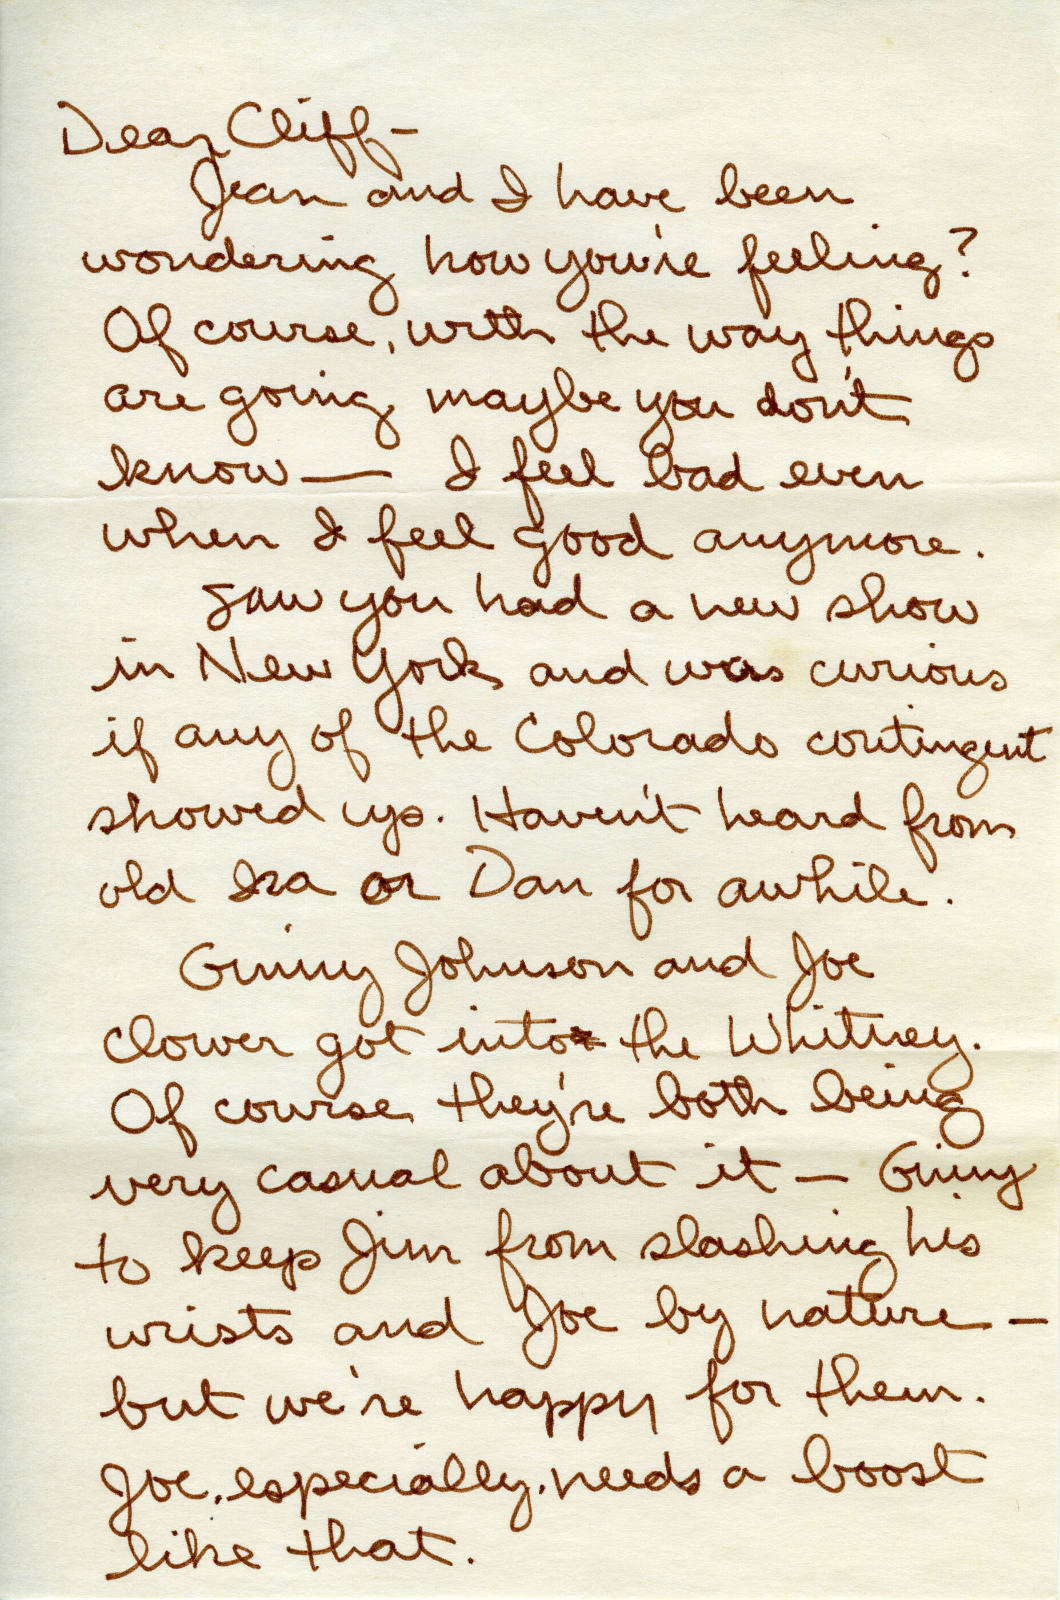 Dear Cliff-
Jean and I have been
wondering how you're feeling?
Of course, with the way things
are going, maybe you don't
know — I feel bad even
when I feel good anymore.
Saw you had a new show
in New York and was curious
if any of the Colorado contingent
showed up. Haven't heard from
old Ira or Dan for awhile.
Ginny Johnson and Joe
Clower got into the Whitney.
Of course, they're both being
very casual about it — Ginny
to keep Jim from slashing his
wrists and Joe by nature —
but we're happy for them.
Joe, especially, needs a boost
like that.